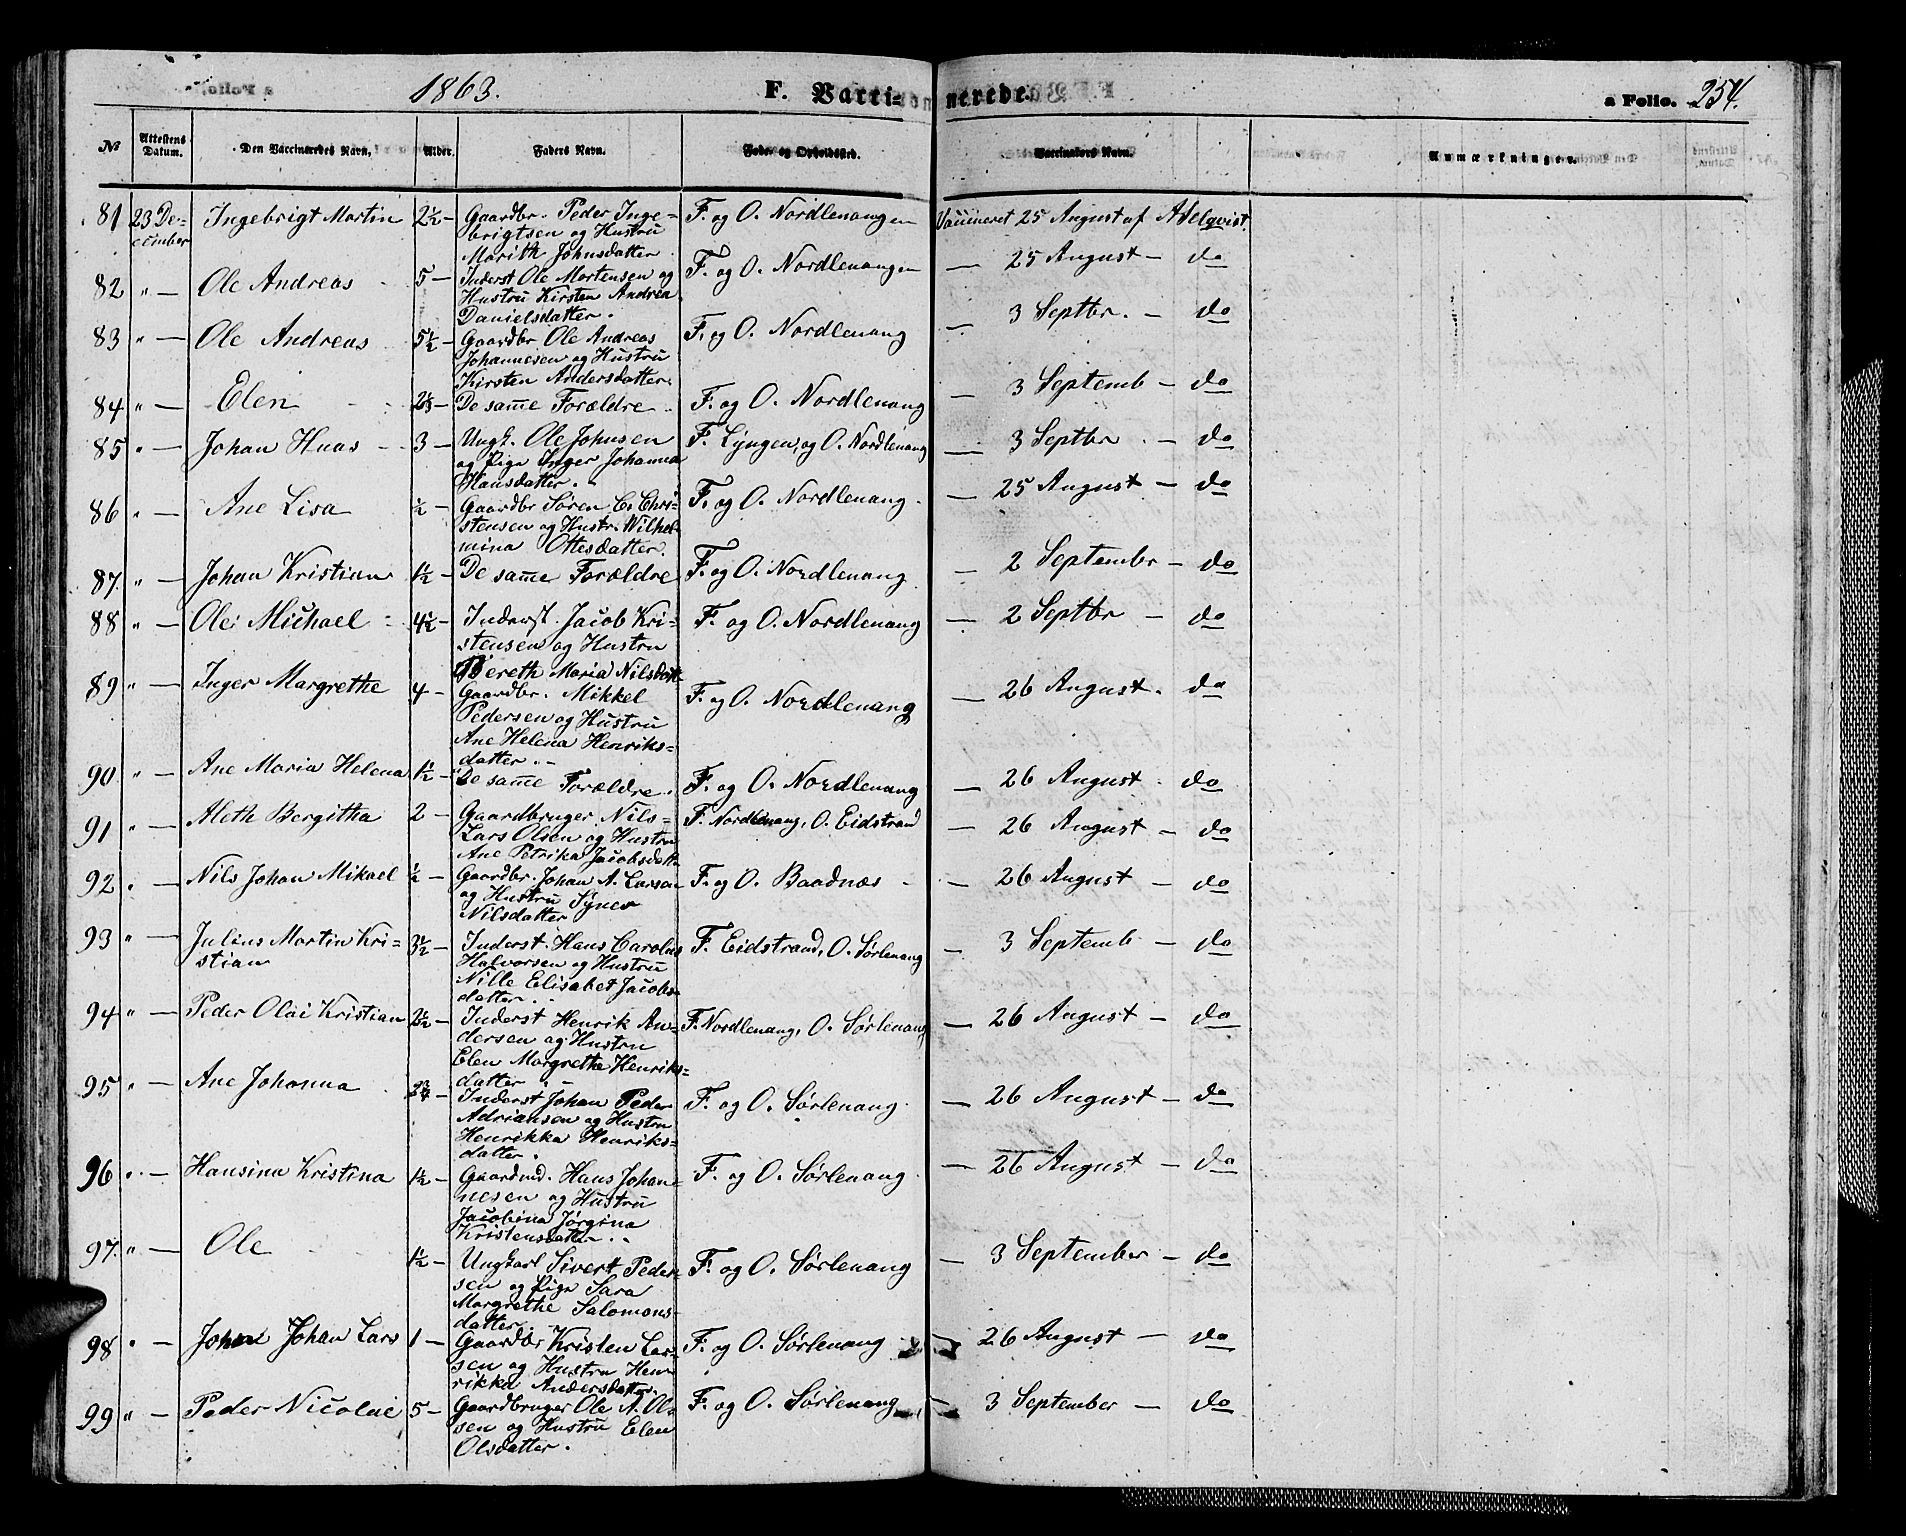 1863. F. Vacci= nerede. a Folio. 254.
№ Attestens Datum. Den Vaccineredes Navn, Alder. Faders Navn. Føde- og Opholdssted. Vaccinators Navn. Anmærkninger.
81 23 De- Ingebrigt Martin 2½ – Gaardbr. Peder Inge= F. og O. Nordlenangen Vaccineret 25 August af A Velqvist.
cember brigtsen og Hustru
Marith Johnsdatter
82 " — Ole Andreas 5 – Inderst Ole Mortensen og F. og O. Nordlenangen — 25 August – do
Hustru Kirsten Andrea
Danielsdatter.
83 " — Ole Andreas 5½ – Gaardbr Ole Andreas F. og O. Nordlenang — 3 Septbr. – do
Johannesen og Hustru
Kirsten Andersdatter.
84 " — Elen 2⅓ – De samme Forældre F. og O. Nordlenang — 3 Septemb – do
85 " — Johan Haas 3 – Ungk. Ole Johnsen F. Lyngen, og O. Nordlenang — 3 Septbr – do
og Pige Inger Johanna
Hansdatter.
86 " — Ane Lisa ½ – Gaardbr Søren C. Chri= F. og O. Nordlenang. — 25 August – do
stensen og Hustr. Wilhel=
mina Ottesdatter.
87. " — Johan Kristian 1½ – De samme Forældre F. og O. Nordlenang — 2 Septembr – do
88 " — Ole Michael 4½ – Inderst. Jacob Kri= F. og O. Nordlenang — 2 Septbr – do
stensen og Hustru
Bereth Maria Nilsdatt.
89 " — Inger Margrethe 4 – Gaardbr. Mikkel F. og O. Nordlenang — 26 August. do
Pedersen og Hustru
Ane Helena Henriks=
datter.
90. " — Ane Maria Helena 1½ – De samme Forældre. F. og O. Nordlenang — 26 August. do
91 " — Aleth Bergitha 2 – Gaardbruger. Nils- F. Nordlenang, O. Eidstrand — 26 August – do
Lars Olsen og Hustru
Ane Petrika Jacobsdatt.
92 . — Nils Johan Mikael ½ – Gaardbr. Johan A. Larsen F. og O. Baadnæs — 26 August – do
og Hustru Synev
Nilsdatter
93 " — Julius Martin Kri= 3½ – Inderst. Hans Carolius F. Eidstrand, O. Sørlenang — 3 Septemb – do
stian Halvorsen og Hustru
Nille Elisabet Jacobs=
datter.
94 " — Peder Olai Kristian 2½ – Inderst Henrik An= F. Nordlenang, O. Sørlenang — 26 August – do
dersen og Hustru
Elen Margrethe Henriks=
datter
95 " — Ane Johanna 2¾ – Inderst Johan Peder F. og O. Sørlenang. — 26 August – do
Adriansen og Hustru
Henrikka Henriks=
datter.
96 . — Hansina Kristina 1½ – Gaardmd. Hans Johan= F. og O. Sørlenang. — 26 August – do
nesen og Hustru
Jacobina Jørgina
Kristensdatter
97. " — Ole 1½ – Ungkarl Sivert Peder= F. og O. Sørlenang — 3 September – do
sen og Pige Sara
Margrethe Salomons=
datter.
98 . — Johan Lars 1 – Gaardbr Kristen Lar= F. og O. Sørlenang — 26 August – do
sen og Hustru Hen
rikka Andersdatter.
99 " — Peder Nicolai 5 – Gaardbruger Ole A. Ol= F. og O. Sørlenang — 3 September – do
sen og Hustru Elen
Olsdatter.